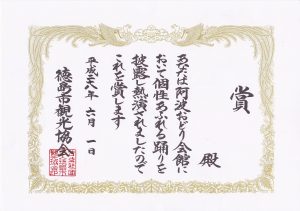 賞
殿
あなたは阿波おどり会館に
おいて個性あふれる踊りを
披露し熱演されましたので
これを賞します
平成二八年 六月 一日
徳島市観光協会